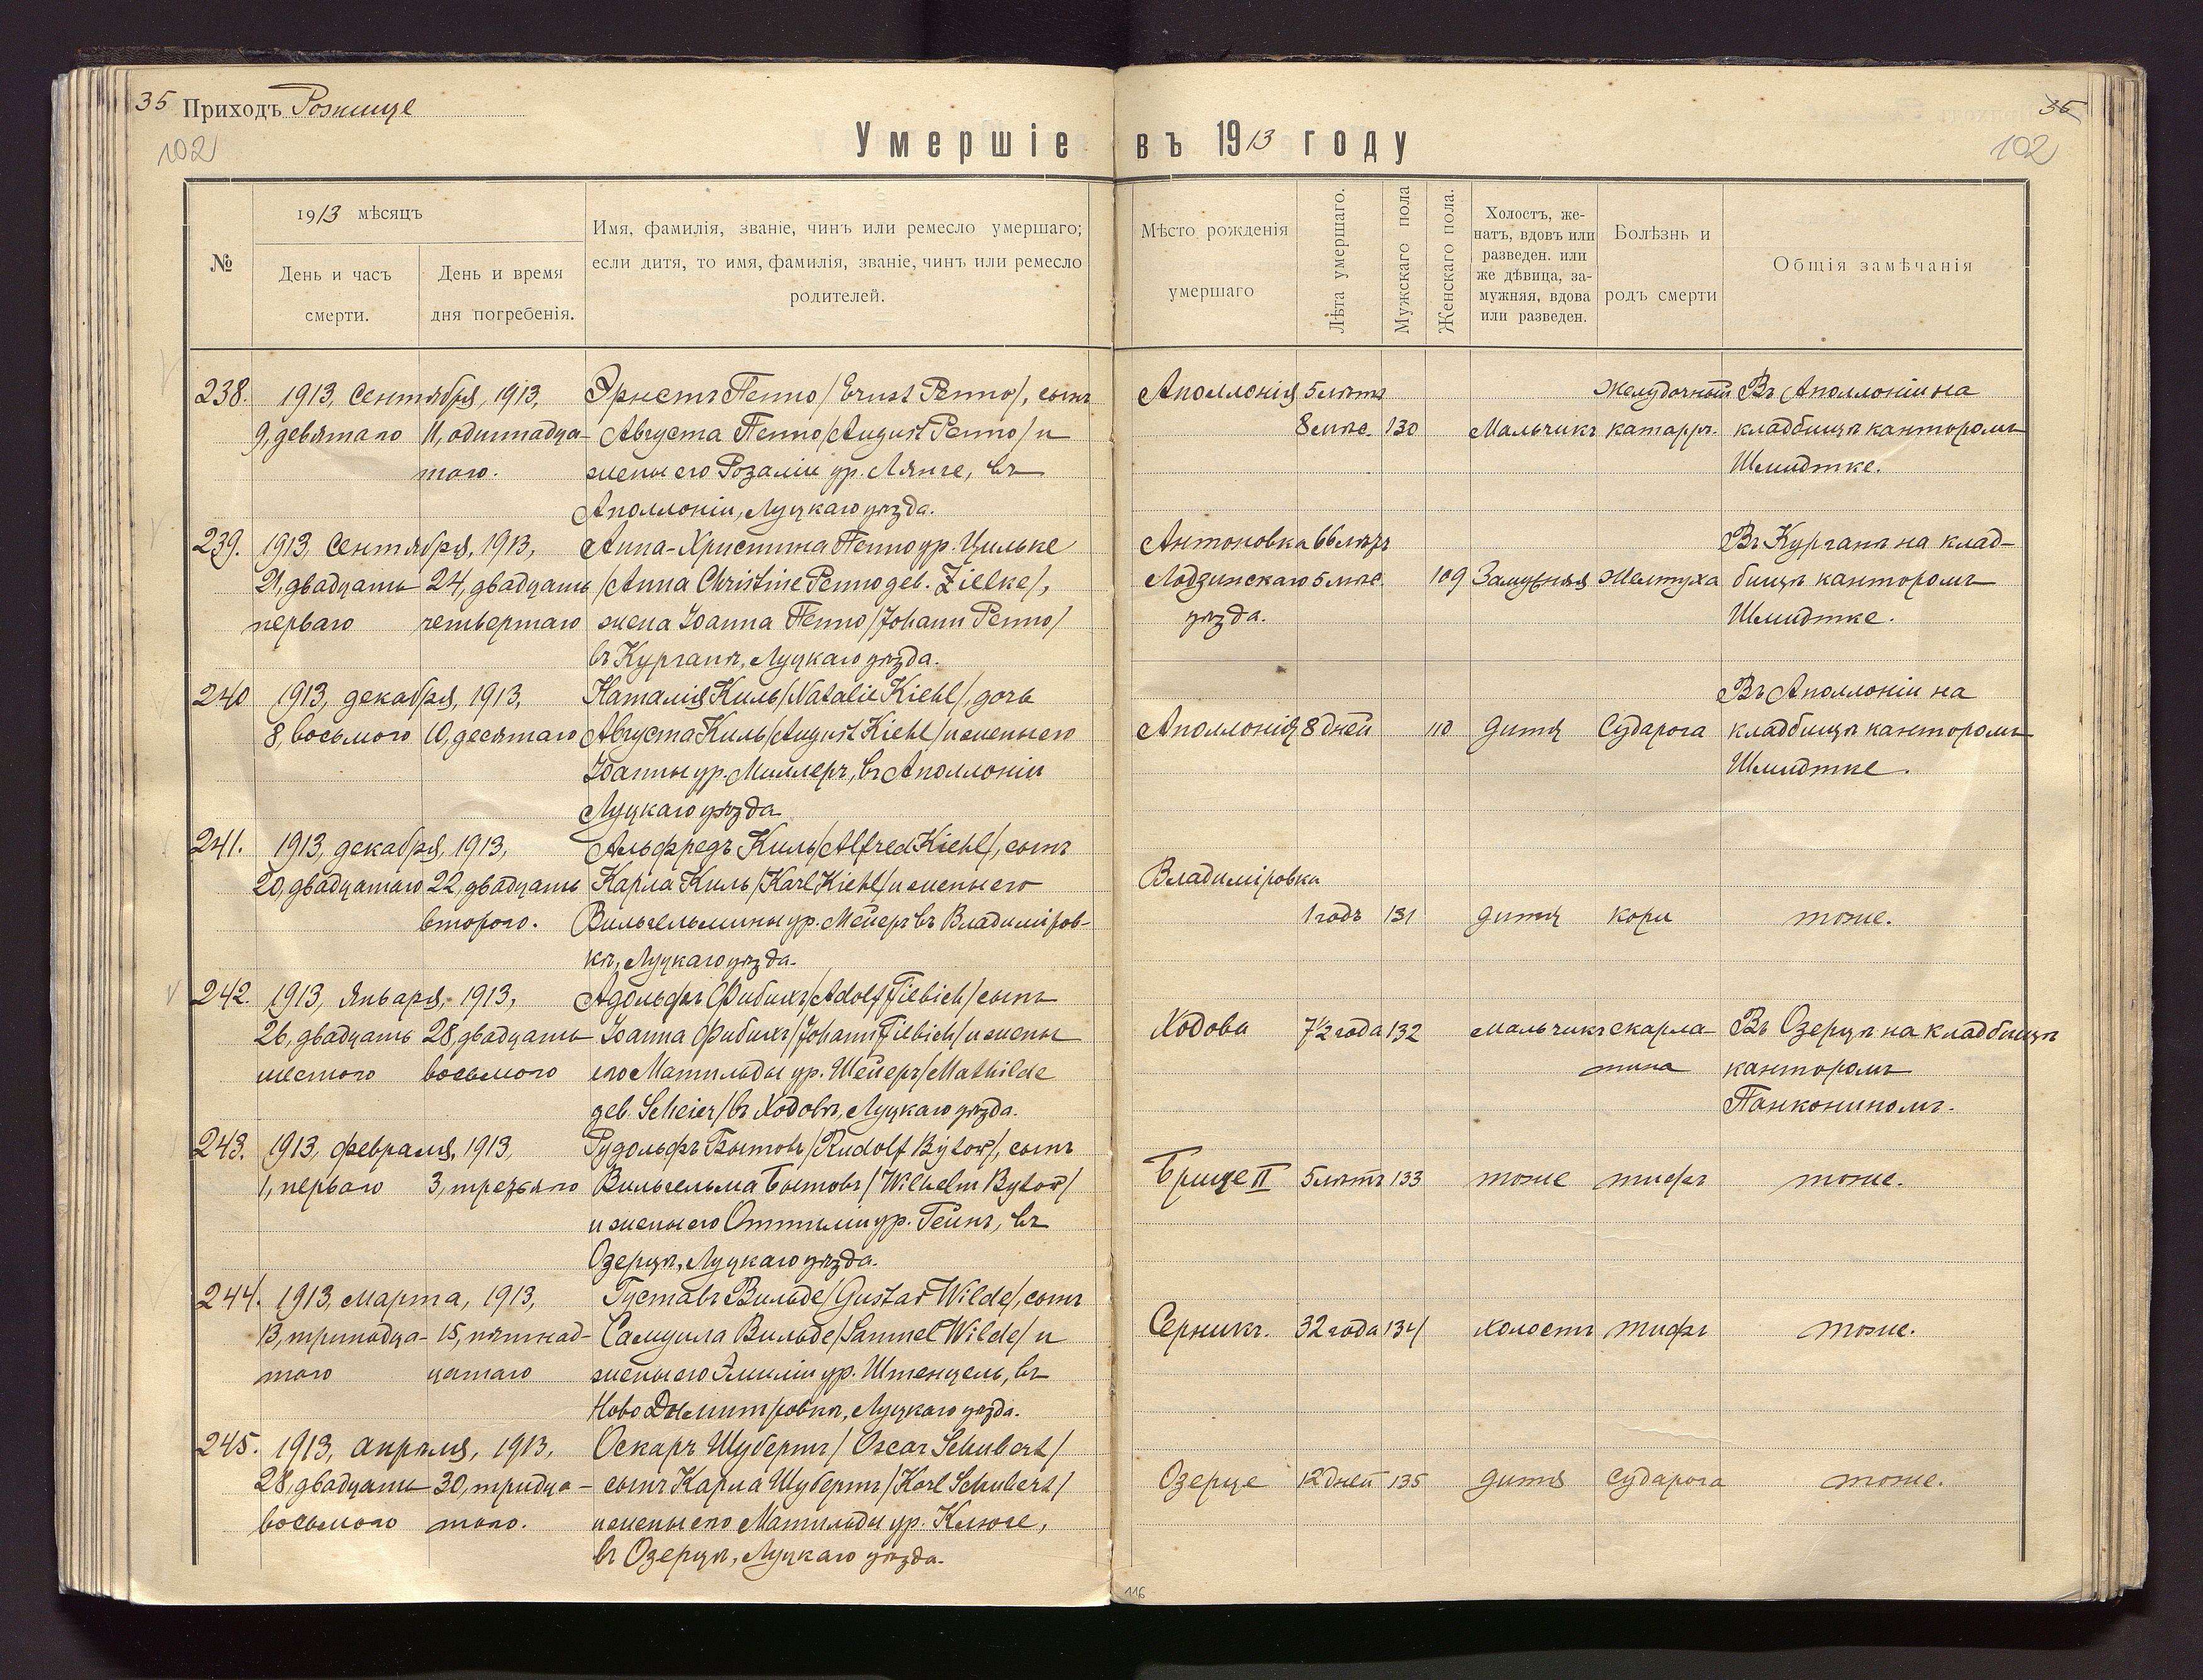 35 Приходъ Рожище
35
102
102
Умершіе въ 1913 году
№
1913 мѣсяцъ
День и часъ смерти.
День и время дня погребенія.
Имя, фамилія, званіе, чинъ или ремесло умершаго;
если дитя, то имя, фамилія, званіе, чинъ или ремесло
родителей.
Мѣсто рожденія
умершаго
Лѣта умершаго.
Мужскаго пола
Женскаго пола.
Холостъ, же-
натъ, вдовъ или
разведен. или
же дѣвица, за-
мужняя, вдова
или разведен.
Болѣзнь и
родъ смерти
Общія замѣчанія
238. 1913, Сентября, 1913, Эрнстъ Пенно /Ernst Penno/, сынъ Аполлонія 5 лѣтъ Желудочный Въ Аполлоніи на
9, девятаго 11, одиннадца- Августа Пенно /August Penno/ и 8 мѣс. 130 Мальчикъ катарръ. кладбищѣ канторомъ
таго. жены его Розаліи ур. Лянге, въ Шмидтке.
Аполлоніи, Луцкаго уѣзда.
239. 1913, Сентября, 1913, Анна-Христина Пенно ур. Цильке Антоновка 66 лѣтъ Въ Курганѣ на клад-
21, двадцать 24, двадцать /Anna Christine Penno geb. Zielke/, Лодзинскаго 5 мѣс. 109 Замужняя Желтуха бищѣ канторомъ
перваго четвертаго жена Іоанна Пенно /Johann Penno/ уѣзда. Шмидтке.
въ Курганѣ, Луцкаго уѣзда.
240 1913, декабря, 1913, Наталія Киль /Natalie Kiehl/, дочь Въ Аполлоніи на
8, восьмого 10, десятаго Августа Киль /August Kiehl/ и жены его Аполлонія 8 дней 110 дитя Сударога кладбищѣ канторомъ
Іоанны ур. Миллеръ, въ Аполлоніи Шмидтке.
Луцкаго уѣзда
241. 1913, декабря, 1913, Альфредъ Киль /Alfred Kiehl/, сынъ
20, двадцатаго 22, двадцать Карла Киль /Karl Kiehl/ и жены его Владиміровка
второго. Вильгельмины ур. Мейеръ въ Владиміров- 1 годъ 131 дитя кори тоже.
кѣ, Луцкаго уѣзда.
242. 1913, Января, 1913, Адольфъ Фибихъ /Adolf Fiebich/ сынъ
26, двадцать 28, двадцать Іоанна Фибихъ /Johann Fiebich/ и жены Ходова 7½ года 132 мальчикъ скарла- Въ Озерцѣ на кладбищѣ
шестого восьмого его Матильды ур. Шейеръ /Mathilde тина канторомъ
geb. Scheier/ въ Ходовѣ, Луцкаго уѣзда. Панкониномъ.
243. 1913, февраля, 1913, Рудольфъ Бытовъ /Rudolf Bytow/, сынъ
1, перваго 3, третьяго Вильгельма Бытовъ /Wilhelm Bytow/ Брище II 5 лѣтъ 133 тоже тифъ тоже.
и жены его Оттиліи ур. Гейнъ, въ
Озерцѣ, Луцкаго уѣзда.
244. 1913, Марта, 1913, Густавъ Вильде /Gustav Wilde/, сынъ
13, тринадца- 15, пятнад- Самуила Вильде /Samuel Wilde/ и Серникъ. 32 года 134 холостъ тифъ тоже.
таго цатаго жены его Эмиліи ур. Штенцель, въ
Ново Дмитровкѣ, Луцкаго уѣзда.
245. 1913, апрѣля, 1913, Оскаръ Шубертъ /Oscar Schubert/
28, двадцать 30, тридца- сынъ Карла Шубертъ /Karl Schubert/ Озерце 12 дней 135 дитя Сударога тоже.
восьмого таго. и жены его Матильды ур. Клюге,
въ Озерцѣ, Луцкаго уѣзда.
116